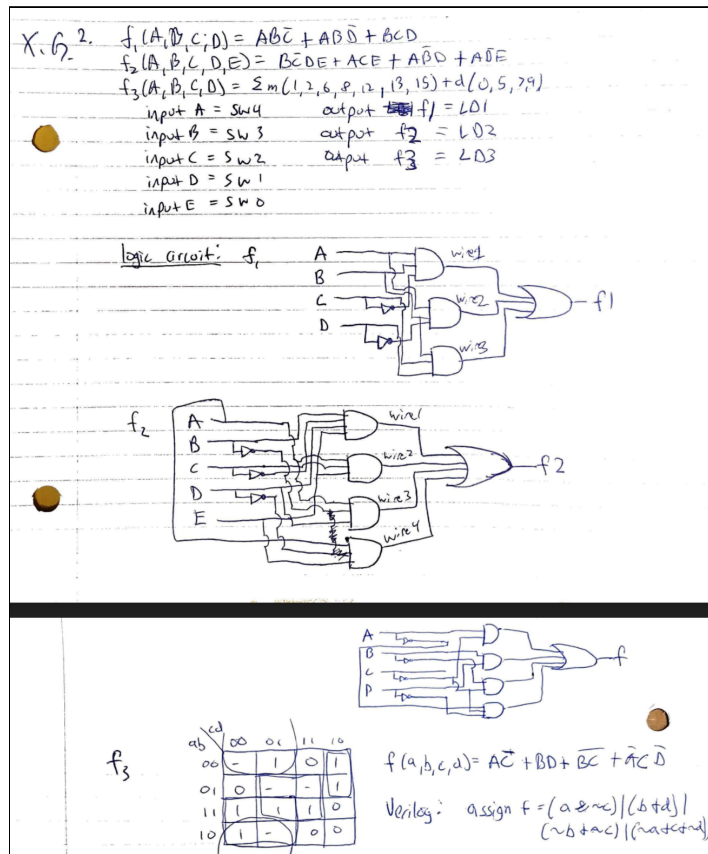 X.6.2. f₁(A,B,C,D) = ABC̄ + ABD̄ + BCD
f₂(A,B,C,D,E) = BC̄DE + ACE + AB̄D + AD̄E
f₃(A,B,C,D) = Σm(1,2,6,8,12,13,15) + d(0,5,7,9)
input A = SW4 output f1 = LD1
input B = SW3 output f2 = LD2
input C = SW2 output f3 = LD3
input D = SW1
input E = SW0
logic circuit: f₁
A
B
C
D
wire1
wire2
wire3
f1
f₂
A
B
C
D
E
wire1
wire2
wire3
wire4
f2
A
B
C
D
f
f₃
ab cd 00 01 11 10
00 - 1 0 1
01 0 - - 1
11 1 1 1 0
10 1 - 0 0
f(a,b,c,d) = AC̄ + BD + B̄C̄ + ĀCD̄
Verilog: assign f = (a & ~c) | (b + d) |
(~b + ~c) | (~a + c + ~d)